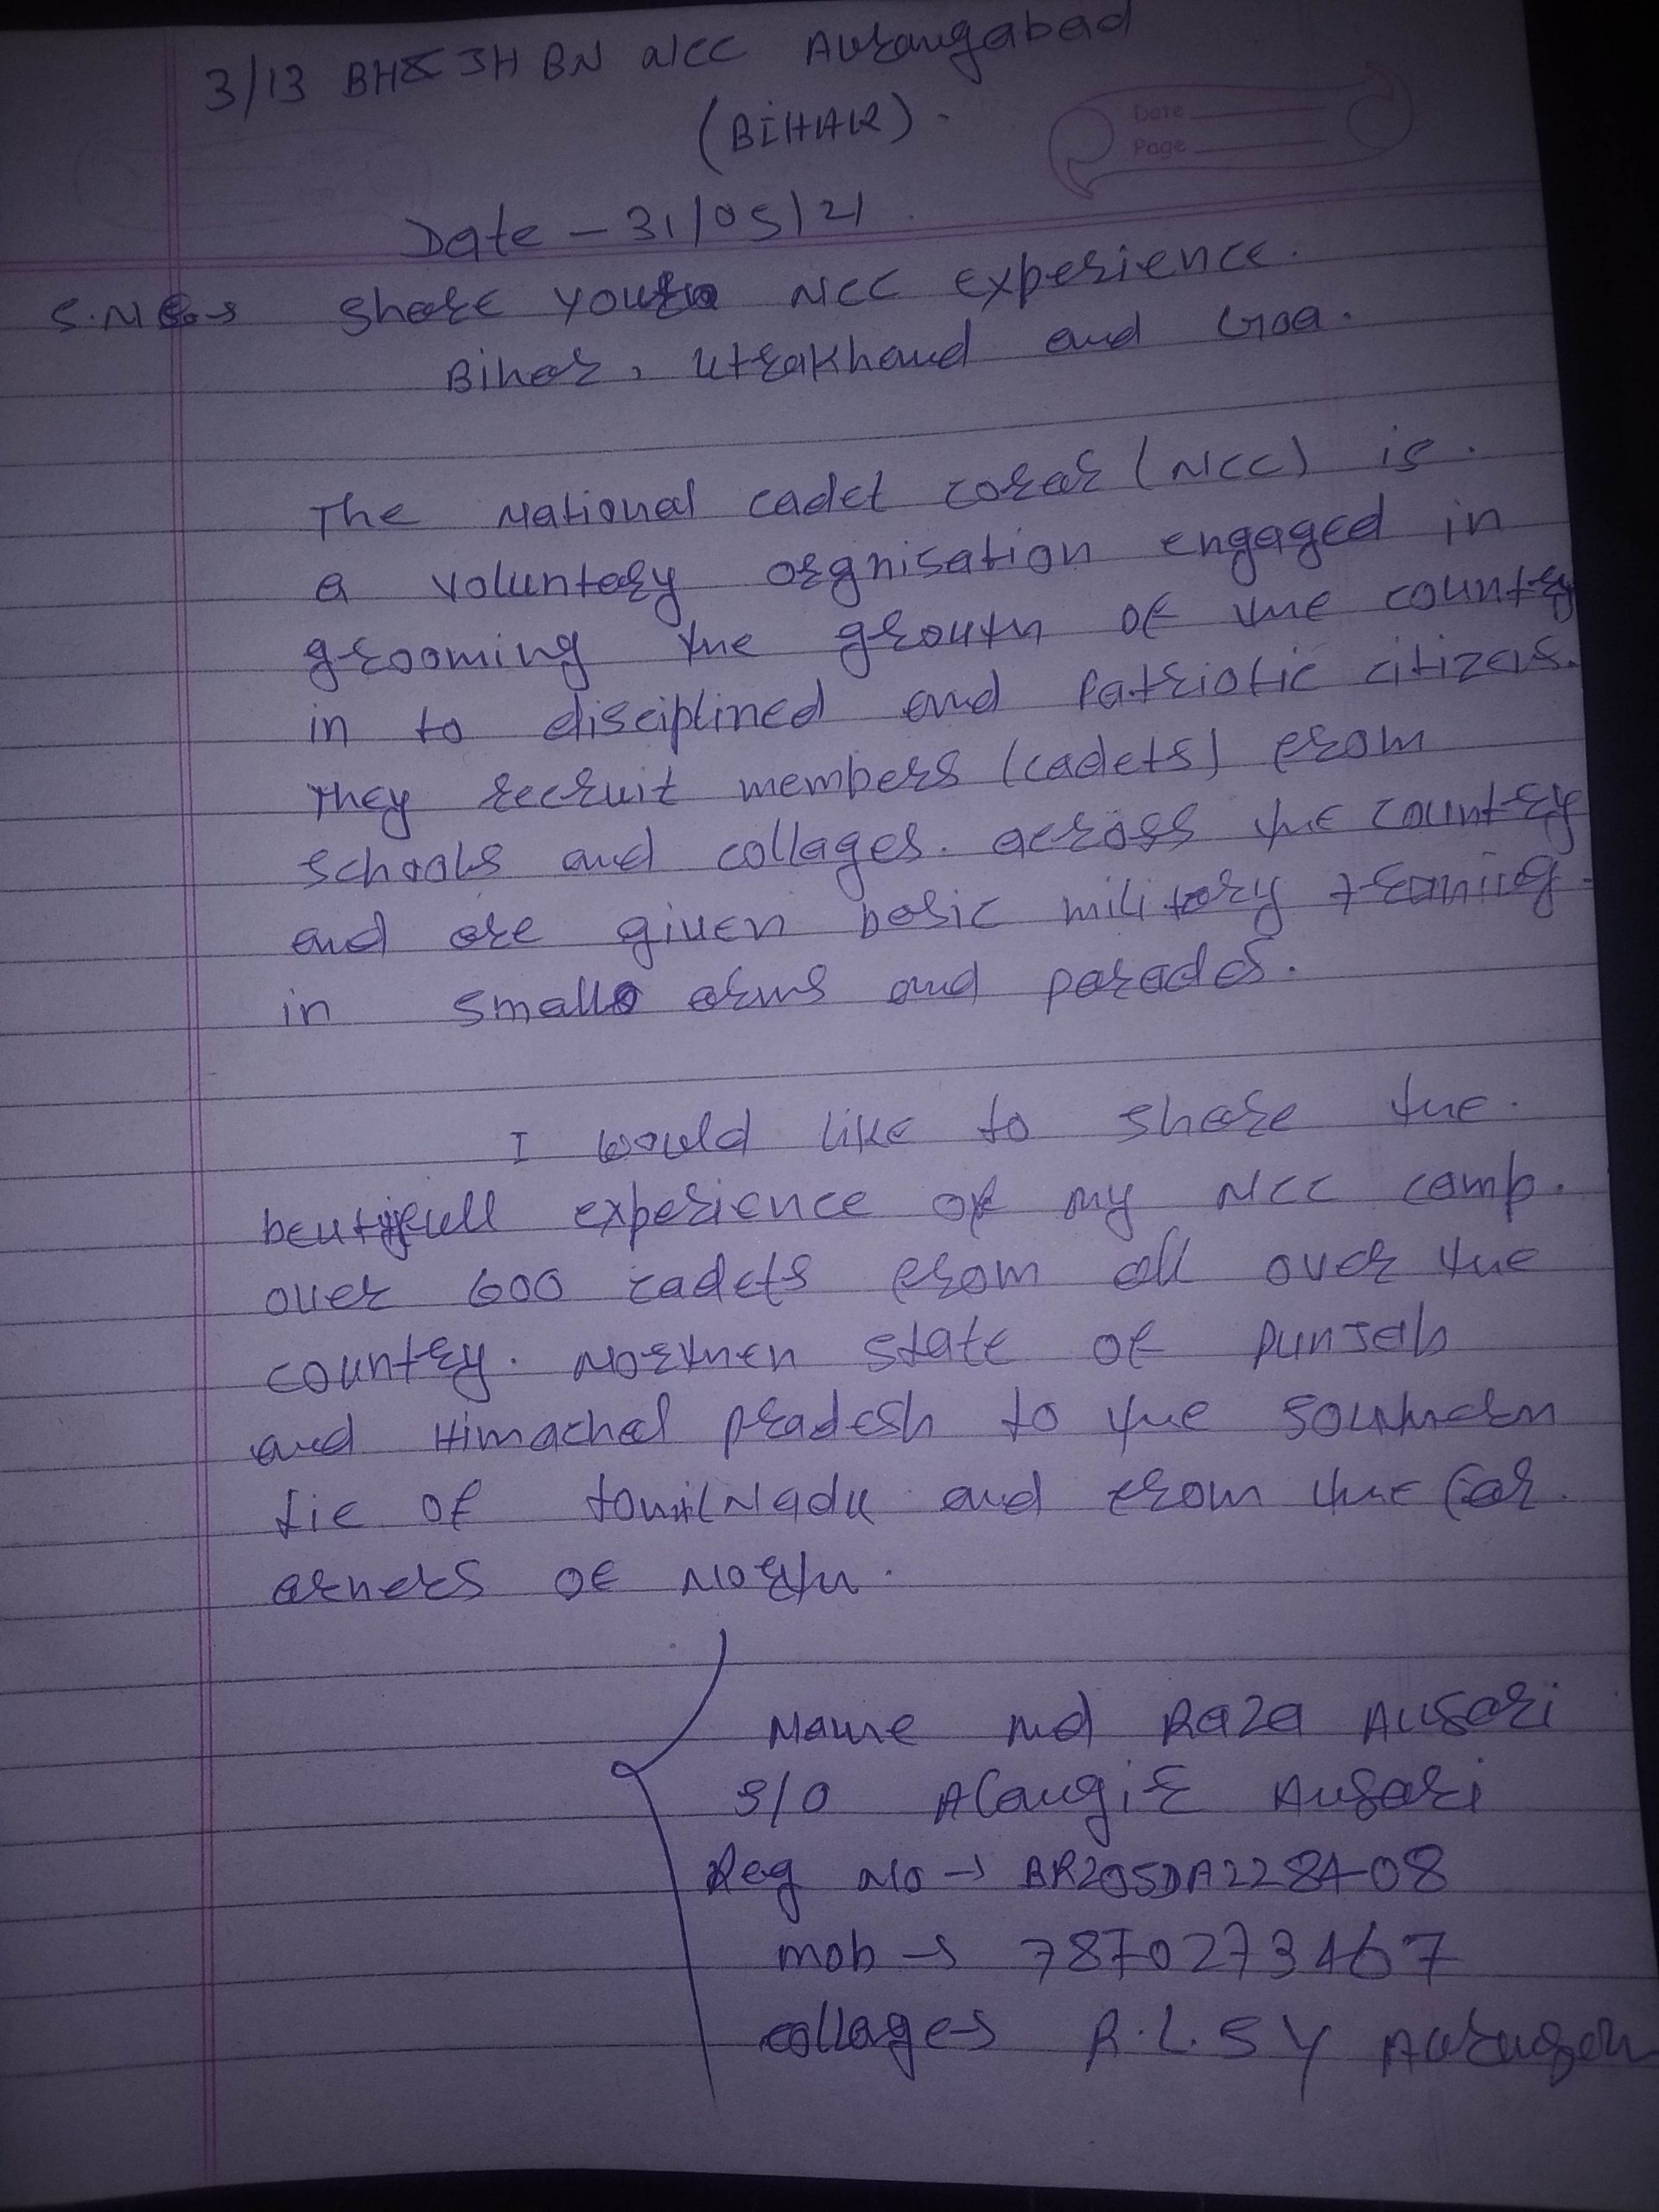 3/13 BH & JH BN NCC Aurangabad
(BIHAR).
Date
Page
Date - 31/05/21.
share your NCC experience.
Bihar, Utrakhand and Goa.
The National cadet (NCC) is.
a voluntary orgnisation engaged in
grooming the grouth of the country
in to disciplined and Patriotic citizens.
They recruit members (cadets) from
schools and collages. across the country
and are given basic military
in small arms and parades.
I would like to share the.
experience of my NCC camp.
over 600 cadets from all over the
country. Northen state of Punjab
and Himachal pradesh to the southern
tie of tamilNadu and from the far.
arners of North.
Name md Raza Ansari
S/O Alangir Ansari
Reg No → BR20SDA228408
mob → 7870273467
collages R.L.S Y